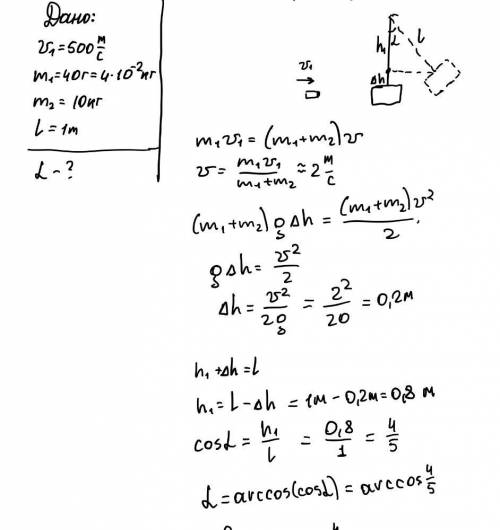 Дано:
υ₁ = 500 м/с
m₁ = 40г = 4·10⁻² кг
m₂ = 10кг
l = 1м
L - ?
υ₁
h₁
L
l
Δh
m₁υ₁ = (m₁+m₂)υ
υ = m₁υ₁/(m₁+m₂) ≈ 2 м/с
(m₁+m₂)gΔh = (m₁+m₂)υ²/2
gΔh = υ²/2
Δh = υ²/2g = 2²/20 = 0,2м
h₁+Δh = l
h₁ = l-Δh = 1м-0,2м=0,8 м
cosL = h₁/l = 0,8/1 = 4/5
L = arccos(cosL) = arccos 4/5